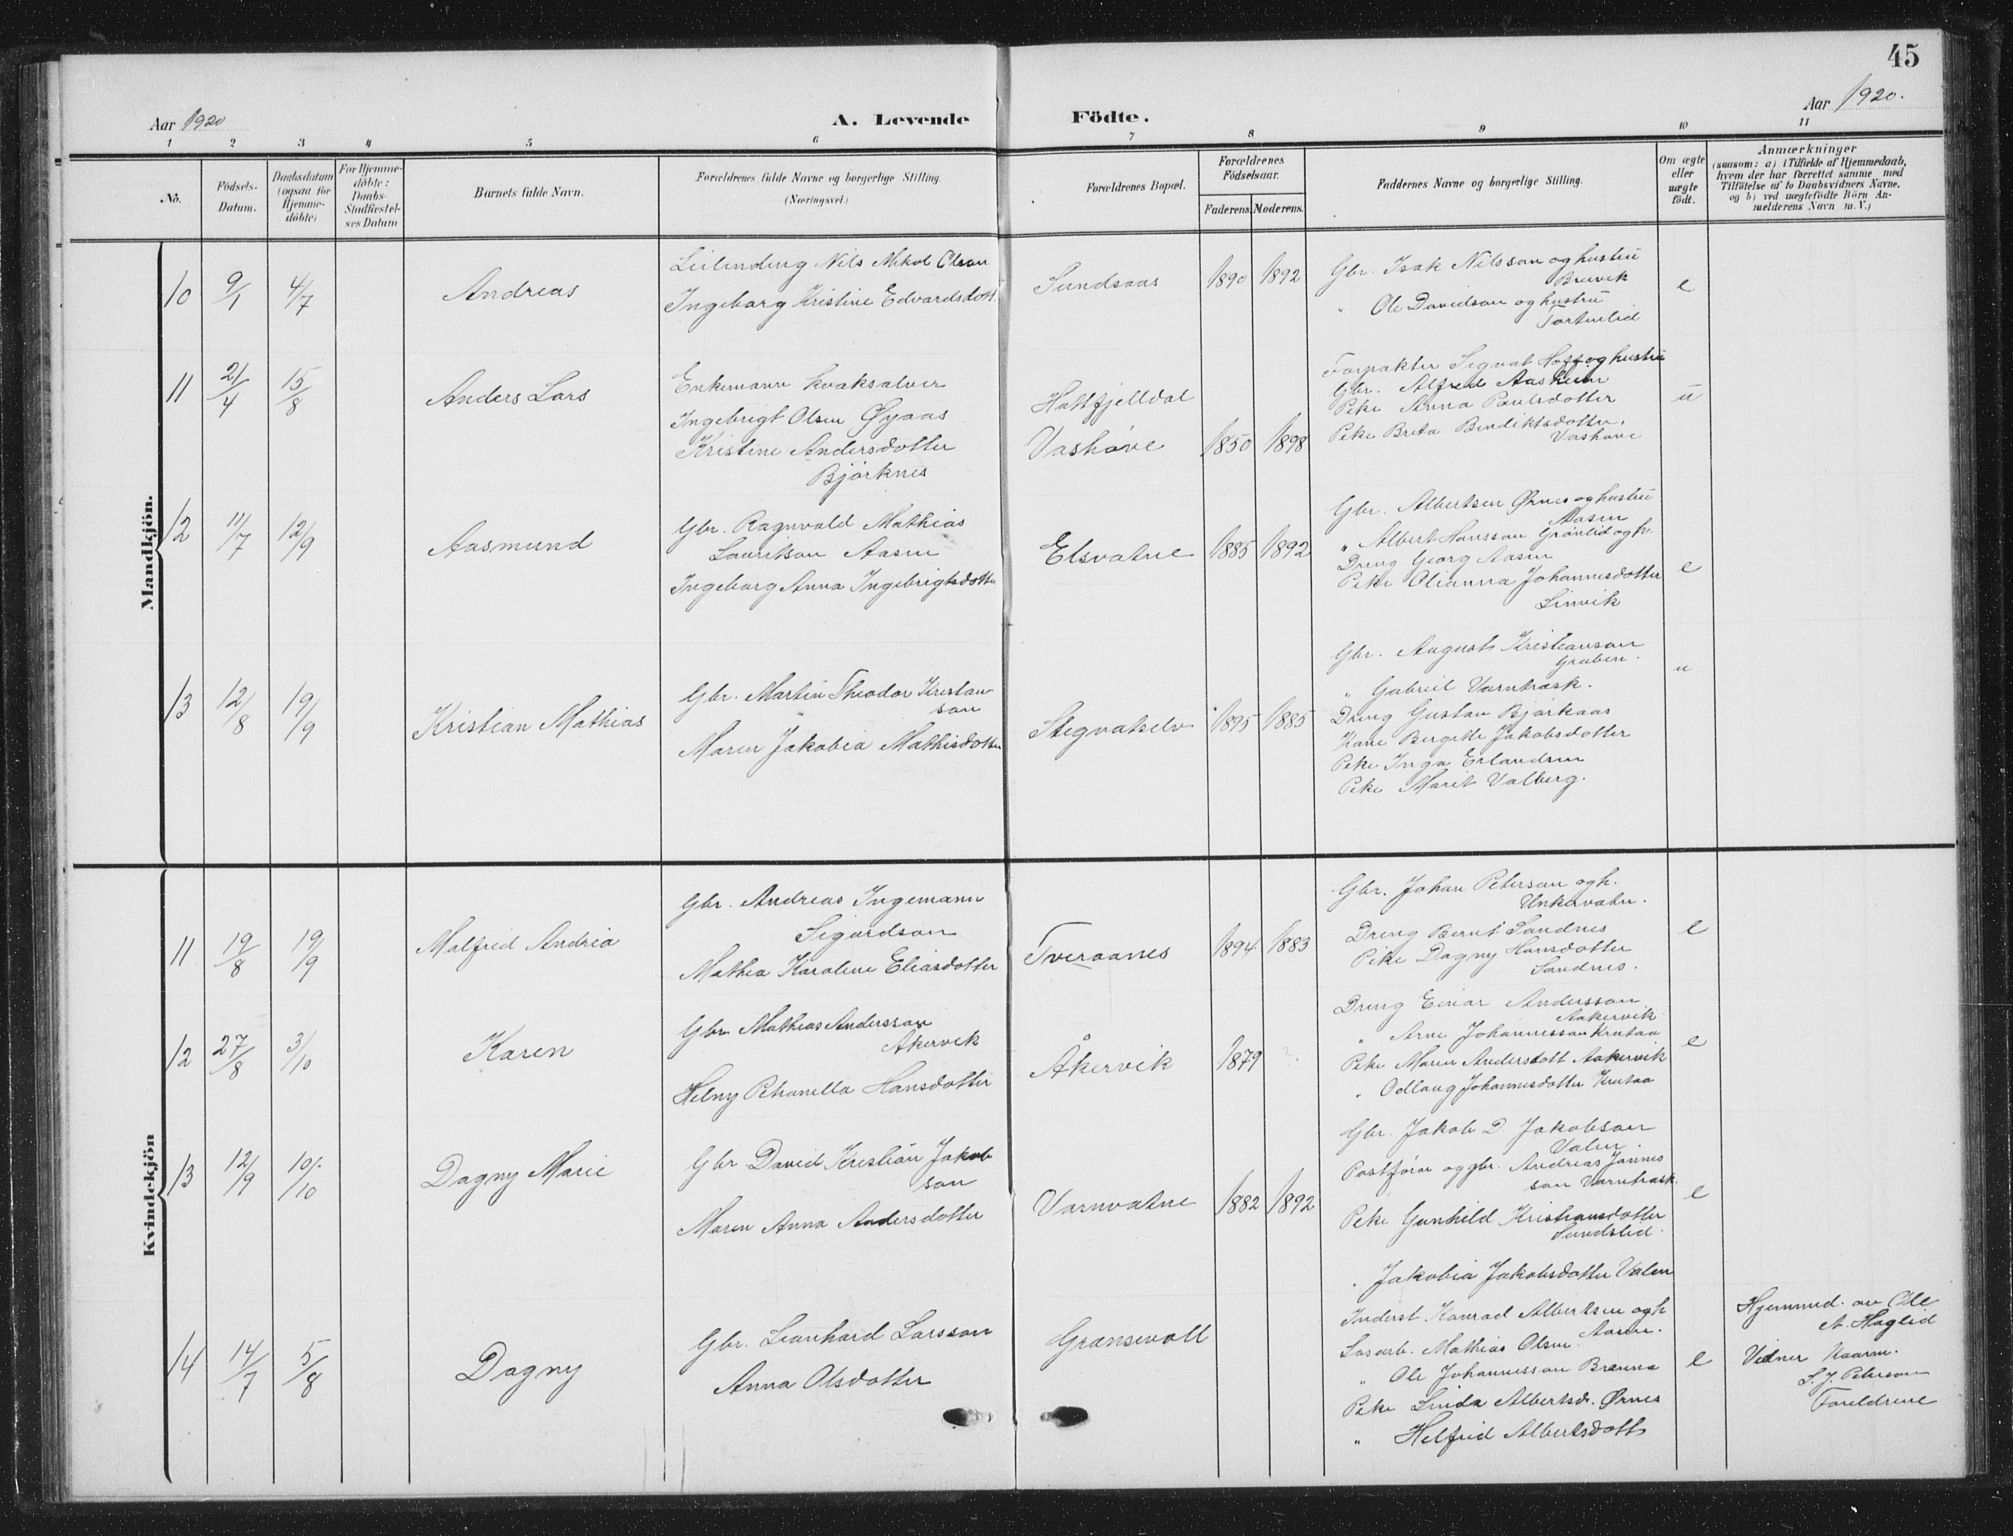 45
Aar 1920
A. Levende Födte.
Aar 1920.
1 2 3 4 5 6 7 8 9 10 11
No.
Födsels-Datum.
Daabsdatum (ogsaa for Hjemme-döbte)
For Hjemme-döbte: Daabs-Stadfæstel-ses Datum
Barnets fulde Navn.
Forældrenes fulde Navne og borgerlige Stilling. (Næringsvei.)
Forældrenes Bopæl.
Forældrenes Födselsaar.
Faderens. Moderens.
Faddernes Navne og borgerlige Stilling.
Om ægte eller uægte födt.
Anmærkninger
(saasom: a) i Tilfælde af Hjemmedaab, hvem der har forrettet samme med Tilföielse af to Daabsvidners Navne, og b) ved uægtefödte Börn An-melderens Navn m. V.)
Mandkjön.
10 9/1 4/7 Andreas
Leilending Nils Mikal Olsen
Ingeborg Kristine Edvardsdott.
Sundsaas 1890 1892
Gbr. Isak Nilsson og hustru
Brevik
" Ole Davidson og hustru
e
11 21/4 15/8 Anders Lars
Enkemann kvaksalver
Ingebrigt Olsen Øyaas
Kristine Andersdotter
Bjørknes
Hattfjelldal
Vashøve 1850 1898
Forpakter Sigvat Hoff og hustru
Gbr. Alfred Aasheim
Pike Anna Paulsdotter
Pike Brita Bendiktsdotter,
Vashøve
u
12 11/7 12/9 Aasmund
Gbr. Ragnvald Mathias
Lauritson Aasen
Ingeborg Anna Ingebrigtsdotter
Elsvatne 1885 1892
Gbr. Albertsen Ørnes og hustru
Aasen
" Albert Hansson Grønlid og h.
Dreng Georg Aasen
Pike Olianna Johannesdotter
Linvik
e
13 12/8 19/9 Kristian Mathias
Gbr. Martin Theodor Kristian
son
Maren Jakobia Mathisdotter
Stegvatselv 1895 1885
Gbr. August Kristianson
Gruben.
" Gabriel Varntræsk.
Dreng Gustav Bjørkaas
Kone Bergitte Jakobsdotter
Pike Inga Erlandsen
Pike Marit Valberg.
u
Kvindekjön
11 19/8 19/9 Malfrid Andrea
Gbr. Andreas Ingemann
Sigurdson
Mathea Karoline Eliasdotter
Tveraanes 1894 1883
Gbr. Johan Peterson og h.
Unkervatn.
Dreng Bernt Sandnes
Pike Dagny Hansdotter
Sandnes.
e
12 27/8 3/10 Karen
Gbr. Mathias Andersson
Åkervik
Helny Petranella Hansdotter
Åkervik 1879 ?
Dreng Einar Andersson
Aakervik
" Arne Johannesson Krutaa
Pike Maren Andersdott Aakervik
" Odlaug Johannesdotter Krutaa
e
13 12/9 10/10 Dagny Marie
Gbr David Kristian Jakob
son
Maren Anna Andersdotter
Varnvatne 1882 1892
Gbr. Jakob D. Jakobson
Valen.
Postfører og gbr. Andreas Jonnes
son Varntræsk.
Pike Gunhild Kristiansdotter
Sundslid.
" Jakobia Jakobsdotter Valen
e
14 14/7 5/8 Dagny
Gbr. Leonhard Larsson
Anna Olsdotter
Grænsevoll
Inderst Konrad Albertsen og h
Aasen.
Løsarb. Mathias Olsen
" Ole Johannesson Brænna
Pike Linda Albertsd. Ørnes
" Helfrid Albertsdott
e
Hjemmed. av Ole
A. Haglid
Vidner Kaarn.
S. J. Peterson
Foreldrene